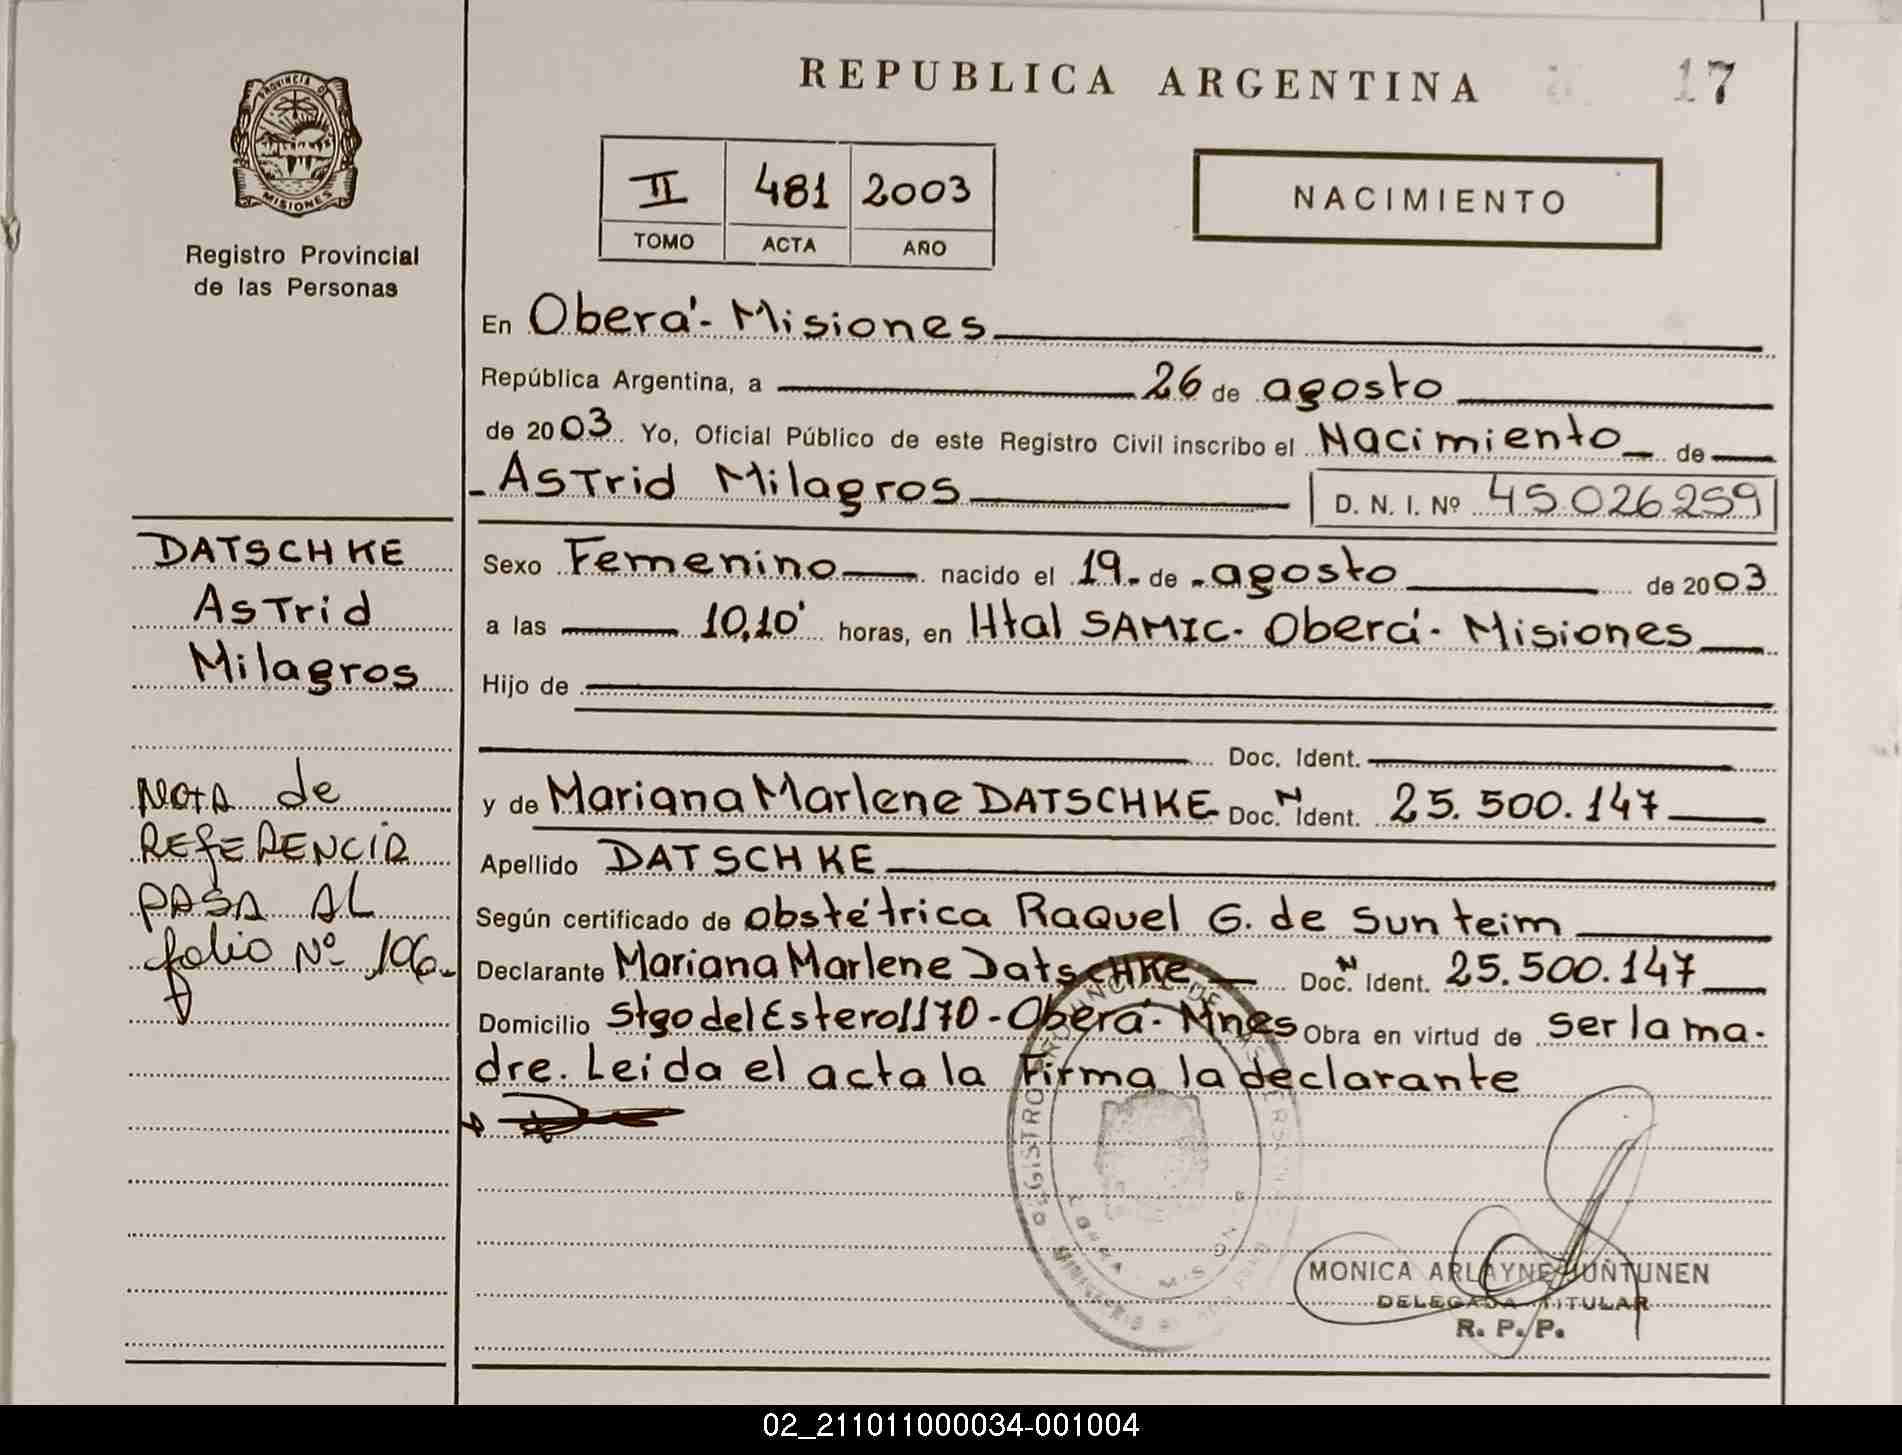 REPUBLICA ARGENTINA 17
PROVINCIA DE
MISIONES
Registro Provincial
de las Personas
II 481 2003
TOMO ACTA AÑO
NACIMIENTO
En Oberá - Misiones
República Argentina, a 26 de agosto
de 2003. Yo, Oficial Público de este Registro Civil inscribo el Nacimiento de
Astrid Milagros D. N. I. Nº 45.026.259
Sexo Femenino nacido el 19 de agosto de 2003
a las 10,10' horas, en Htal SAMIC - Oberá - Misiones
Hijo de
Doc. Ident.
y de Mariana Marlene DATSCHKE Doc. N Ident. 25.500.147
Apellido DATSCHKE
Según certificado de obstétrica Raquel G. de Sunteim
Declarante Mariana Marlene Datschke Doc. N Ident. 25.500.147
Domicilio Stgo del Estero 1170 - Oberá - Mnes Obra en virtud de ser la ma-
dre. Leida el acta la Firma la declarante
DATSCHKE
Astrid
Milagros
NOTA de
REFERENCIA
PASA AL
folio Nº 106.
MONICA ARLAYNE JUÑTUNEN
DELEGADA TITULAR
R. P. P.
02_211011000034-001004